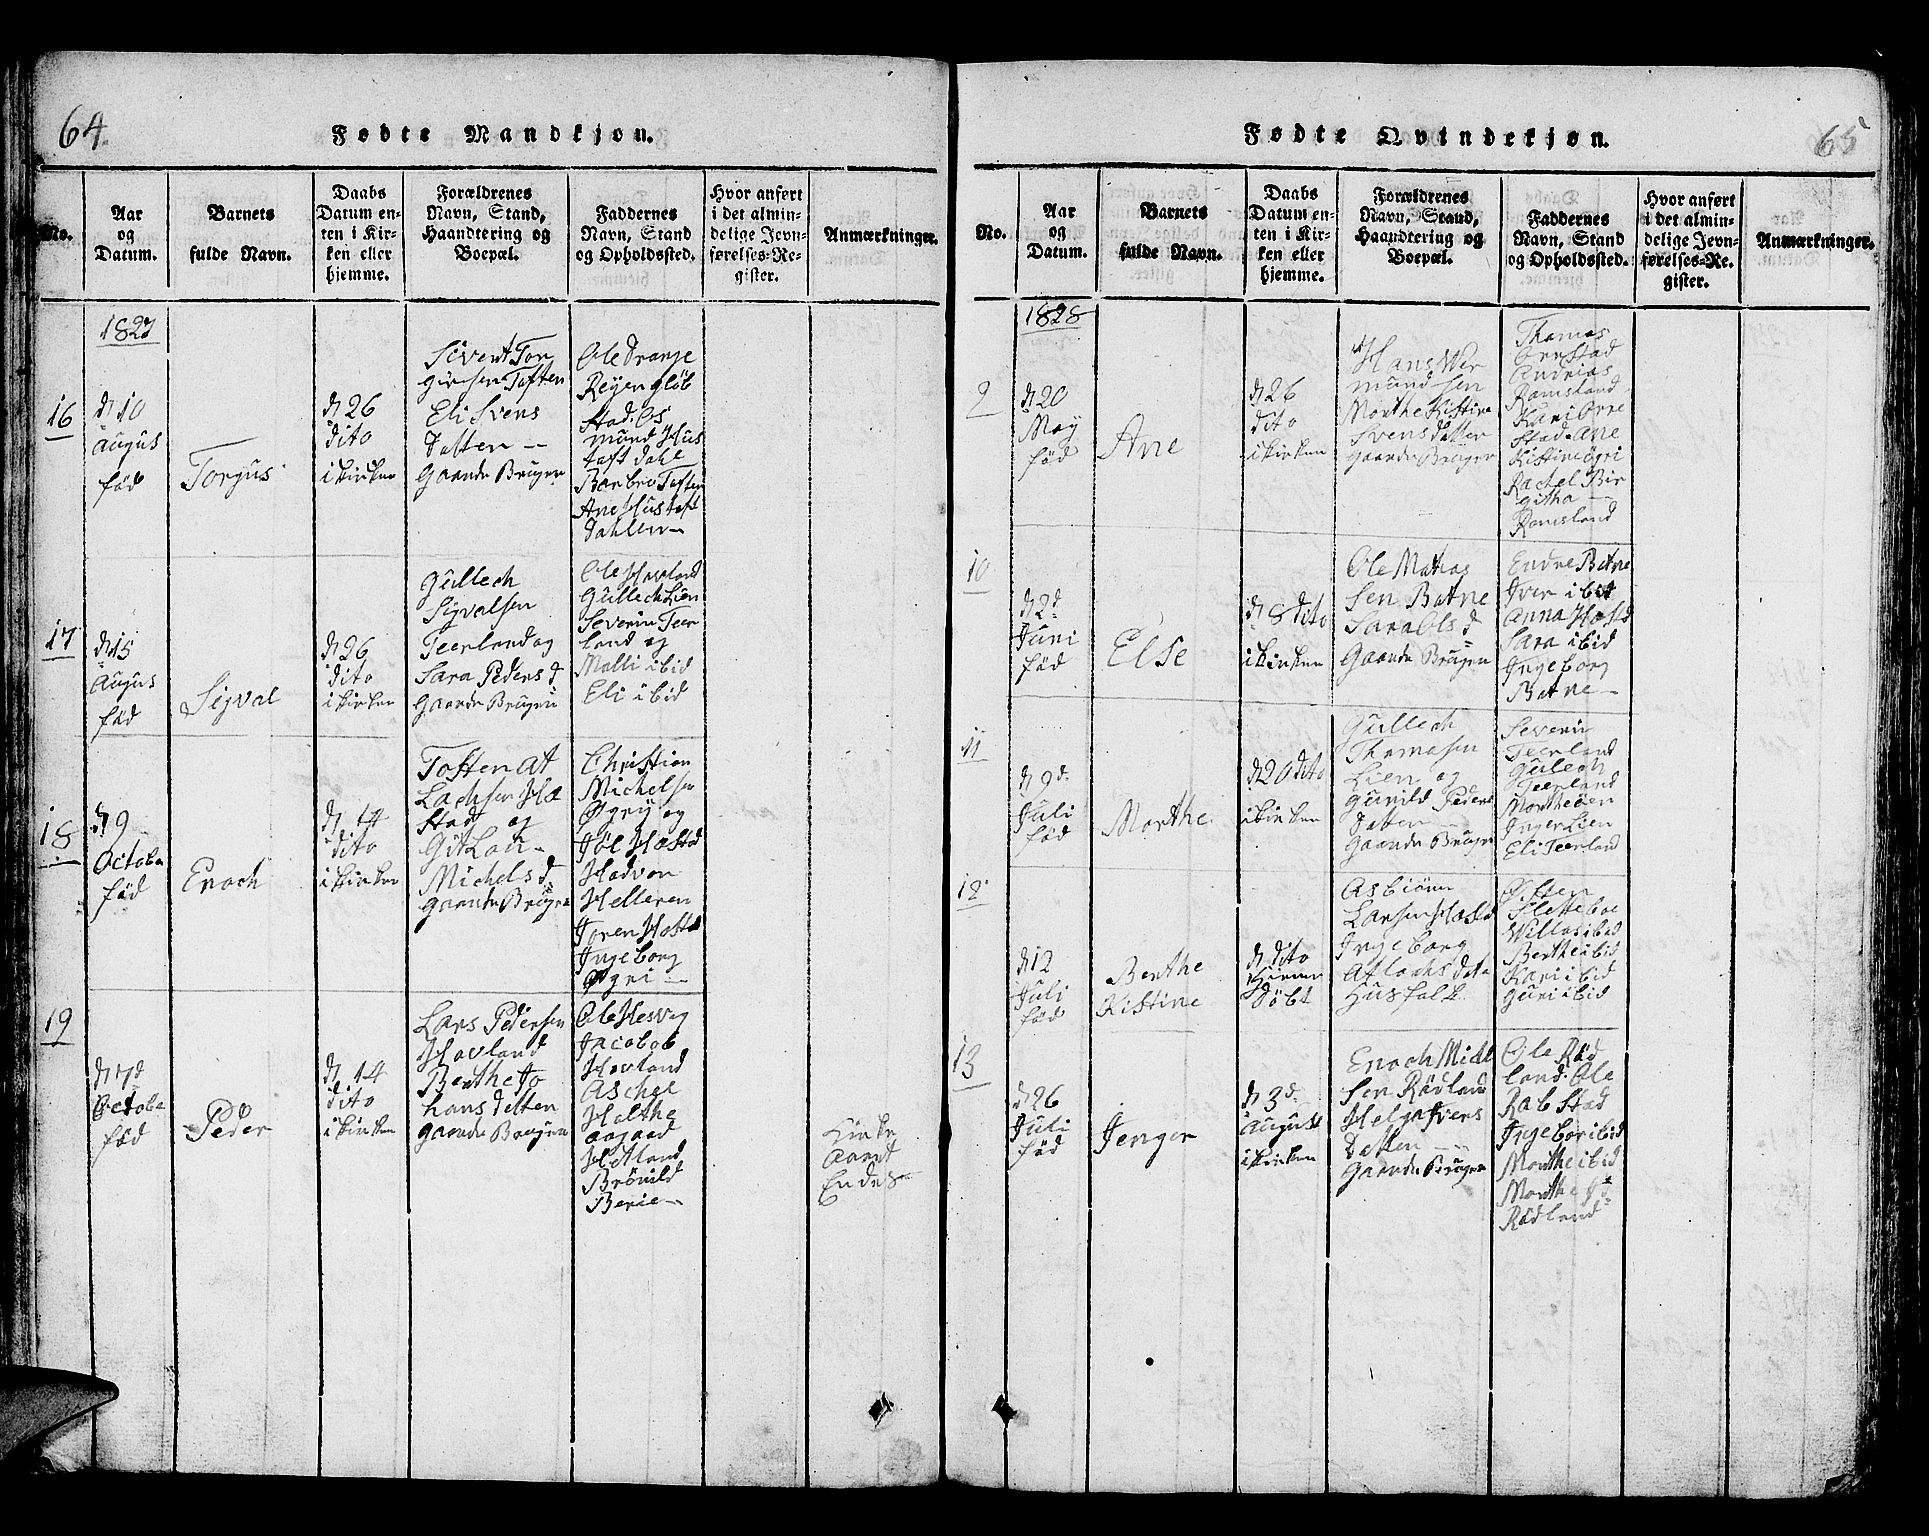 64.
Fødte Mandkjøn.
No.
Aar
og
Datum.
Barnets
fulde Navn.
Daabs
Datum en-
ten i Kir-
ken eller
hjemme.
Forældrenes
Navn, Stand,
Haandtering og
Boepæl.
Faddernes
Navn, Stand
og Opholdssted.
Hvor anført
i det almin-
delige Jevn-
førelses-Re-
gister.
Anmærkninger.
1827
16
d 10
augus
fød
Torgus
d 26
dito
i kirken
Sivert Tor
gusen Toften
Eli Svens
datten
Gaardr Bruger
Ole Dranje
Stad. Os
mund Hus
toft dahl
Barbro Toften
Ane Hustoft
Dahlen
17
d 15
Augus
fød
Sigval
d 26
dito
i kirken
Gullech
Sigvalsen
Teerland og
Sara Peders d
Gaardr Bruger
Ole Hovland
Gullech Lien
Severin Teer
land og
Malli ibid
Eli ibid
18
d 9
Octobe
fød
Enoch
d 14
dito
i kirken
Toften At
Lachsen Hæ
stad og
Michels d
Gaardr Bruger
Christian
Michelsen
Øgrij og
Joel Hæstad
Hadvor
Helleren
Joren Hæstad
Ingeborg
Øgri
19
d 7d
Octobe
fød
Peder
d 14
dito
i kirken
Lars Pedersen
Hovland
Berthe Jo
hans detten
Gaardr Bruger
Ole Hesveg
Jacobob
Hovland
Aschel
Helthe
aagaad
Hetland
Brönild
Berie
Kirke
Aaret
Endes
Fødte Qvindekjøn.
65
No.
Aar
og
Datum.
Barnets
fulde Navn.
Daabs
Datum en-
ten i Kir-
ken eller
hjemme.
Forældrenes
Navn, Stand,
Haandtering og
Boepæl.
Faddernes
Navn, Stand
og Opholdssted.
Hvor anført
i det almin-
delige Jevn-
førelses-Re-
gister.
Anmærkninger.
1828
9
d 20
May
fød
Ane
d 26
dito
i kirken
Hans Wer
mundsen
Morthe Kistine
Svens datter
Gaardr Bruger
Thomas
Orrestad
Andrias
Ramsland
Kari Orre
stad. Ane
Kistine Ögri
Rachel Bir
githa
Ramsland
10
d 2d
Juni
fød
Else
d 8 dito
i kirken
Ole Matias
Sen Batne
Sara Ols d
Gaardr Bruger
Endre Batne
Iver ibid
Anna Hæstd
Sara ibid
Ingeborg
Batne
11
d 9d
Juli
fød
Morthe
d 20 dito
i kirken
Gullech
Thomasen
Lien og
Gunild Peders
Datten
Gaardr Bruger
Severin
Teerland
Gulech
Teerland
Inger Lien
Eli Teerland
12
d 12
Juli
fød
Berthe
Kistine
d dito
hieme
döbt
Asbiörn
Larsen Hæstd
Ingeborg
Atlachs data
Husfolk
Sletteboe
Willas ibid
Berthe ibid
Kari ibid
Guri ibid
13
d 26
Juli
fød
Jenger
d 3d
August
i kirken
Enoch Mickl
Sen Rödland
Helga Svens
Datten
Gaardr Bruger
Ole Röd
land. Ole
Rabstad
Ingebor ibid
Morthe ibid
Morthe
Rödland